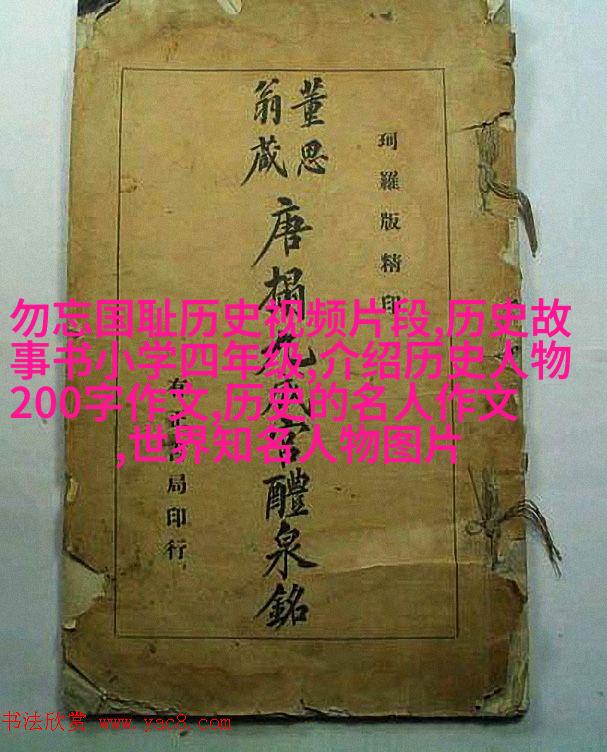 珂羅版精印
董思
翁藏
唐搨九成宮醴泉銘
有正書局印行
勿忘国耻历史视频片段,历史故
事书小学四年级,介绍历史人物
200字作文,历史的名人作文
,世界知名人物图片
书法欣赏 www.yac8.com